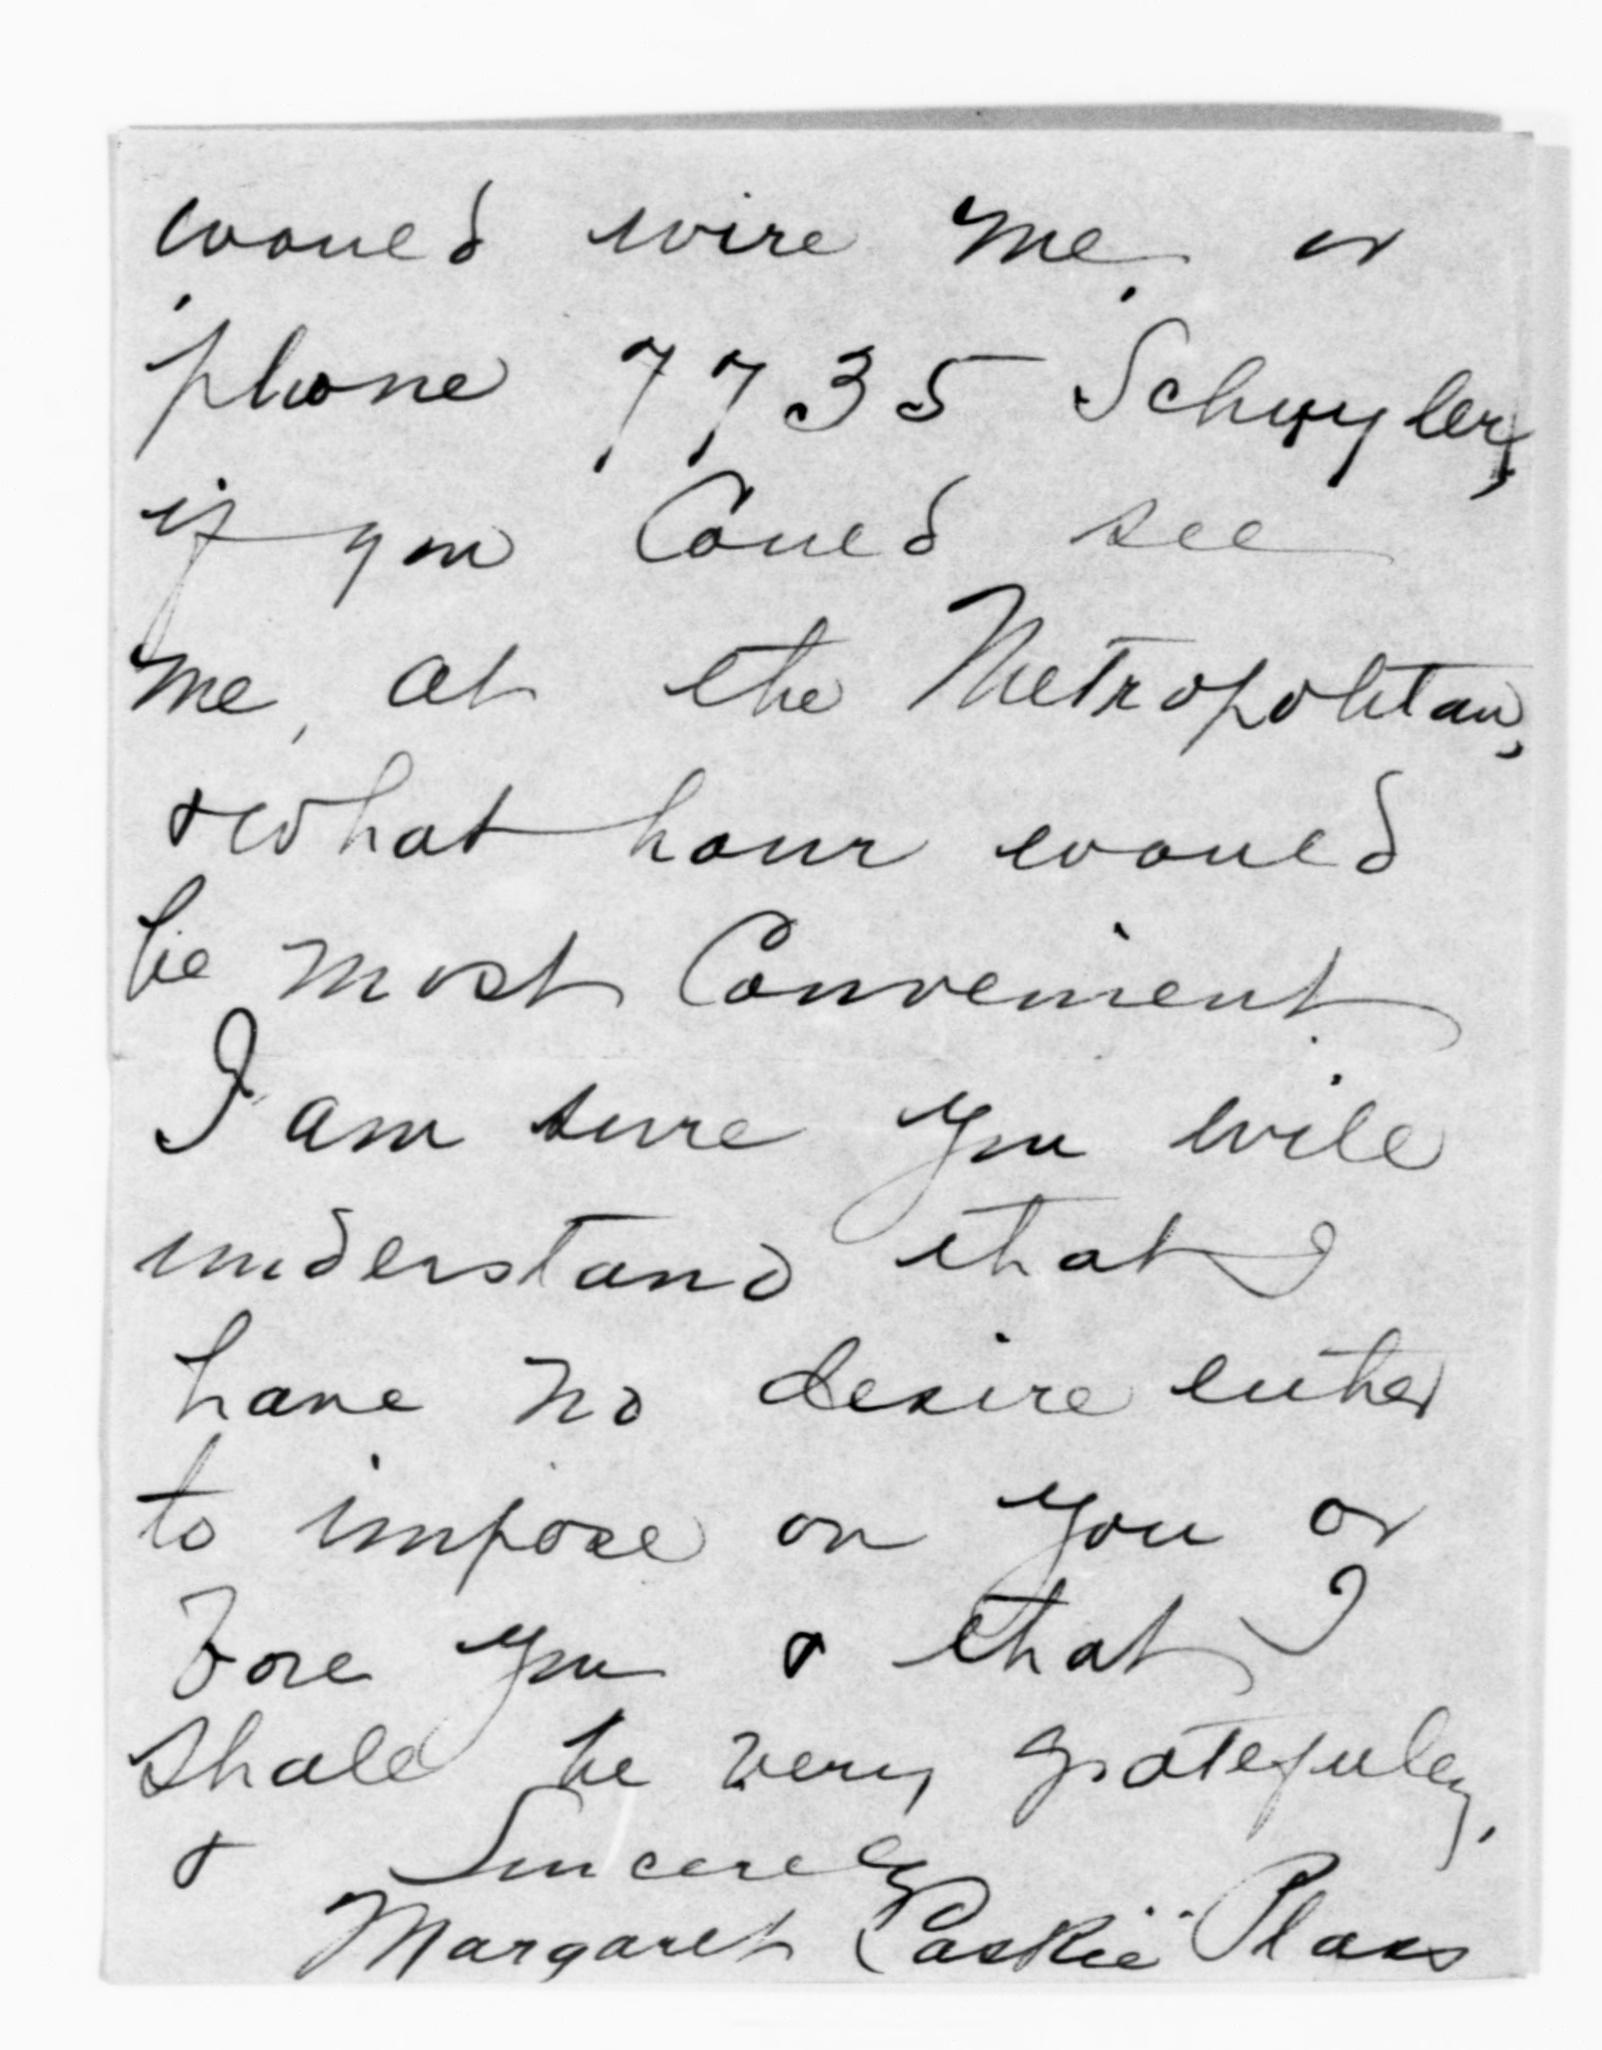 would wire me or
'phone 7735 Schuyler,
if you could see
me, at the Metropolitan,
& what hour would
be most convenient.
I am sure you will
understand that I
have no desire either
to impose on you or
bore you & that I
shall be very gratefully,
& Sincerely
Margaret Caskie Plaas